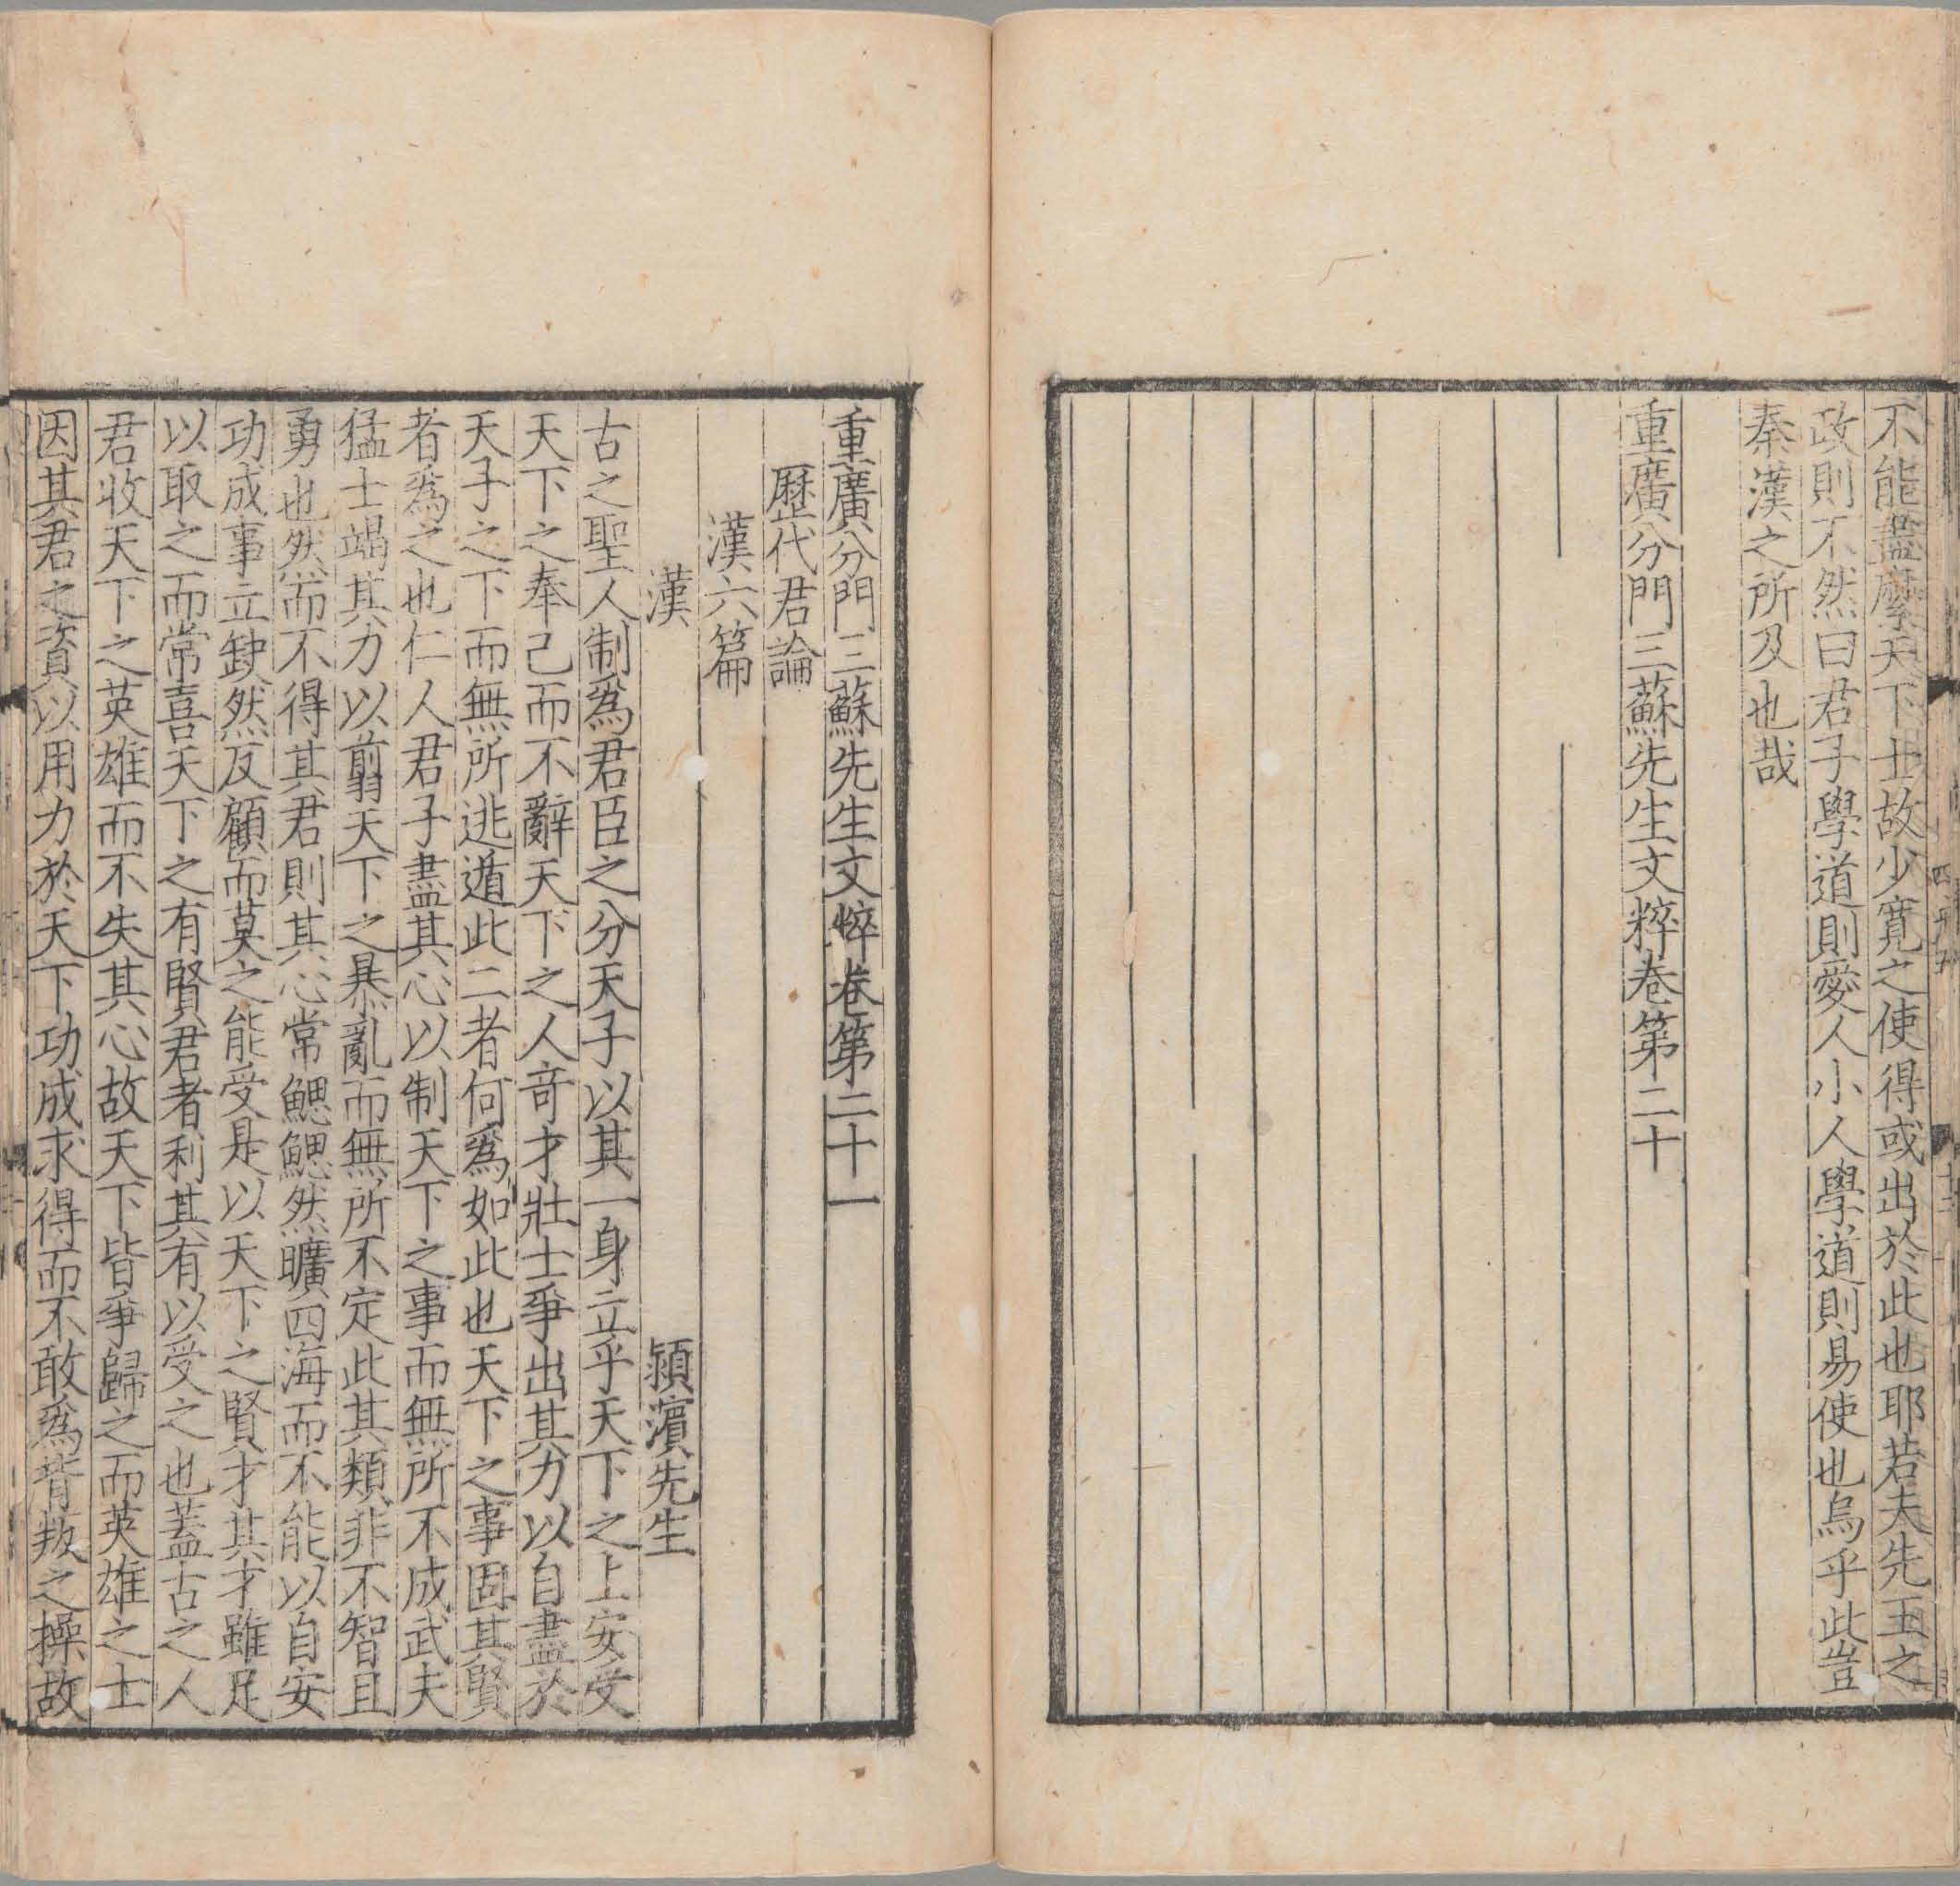 不能盡麋天下士故少寬之使得或出於此也耶若夫先王之
政則不然曰君子學道則愛人小人學道則易使也烏乎此豈
秦漢之所及也哉
重廣分門三蘇先生文粹卷第二十
重廣分門三蘇先生文粹卷第二十一
歷代君論
漢六篇
漢 潁濱先生
古之聖人制爲君臣之分天子以其一身立乎天下之上安受
天下之奉己而不辭天下之人奇才壯士爭出其力以自盡於
天子之下而無所逃遁此二者何爲如此也天下之事固其賢
者爲之也仁人君子盡其心以制天下之事而無所不成武夫
猛士竭其力以翦天下之暴亂而無所不定此其類非不智且
勇也然而不得其君則其心常鰓鰓然曠四海而不能以自安
功成事立缺然反顧而莫之能受是以天下之賢才其才雖足
以取之而常喜天下之有賢君者利其有以受之也蓋古之人
君收天下之英雄而不失其心故天下皆爭歸之而英雄之士
因其君之資以用力於天下功成求得而不敢爲背叛之操故